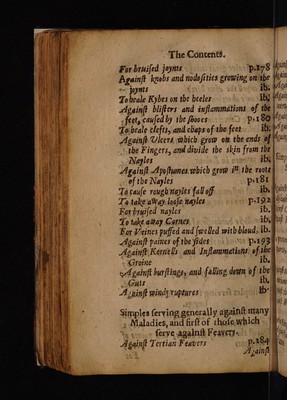 The Contents.
For bruised joynts p.178
Against knobs and nodosities growing on the
joynts ib.
To heale Kybes on the heeles ib.
Against blisters and inflammations of the
feet, caused by the shooes p.180
To heale clefts, and chaps of the feet ib.
Against Ulcers which grow on the ends of
the Fingers, and divide the skin from the
Nayles ib.
Against Apostumes which grow in the roote
of the Nayles p.181
To cause rough nayles fall off ib.
To take away loose nayles p.192
For bruised nayles ib.
To take away Cornes ib.
For Veines puffed and swelled with bloud, ib.
Against paines of the sides p.193
Against Kernells and Inflammations of the
Groine ib.
Against burstings, and falling down of the
Guts ib.
Against windy ruptures ib.
Simples serving generally against many
Maladies, and first of those which
serve against Feavers.
Against Tertian Feavers p.184
Against